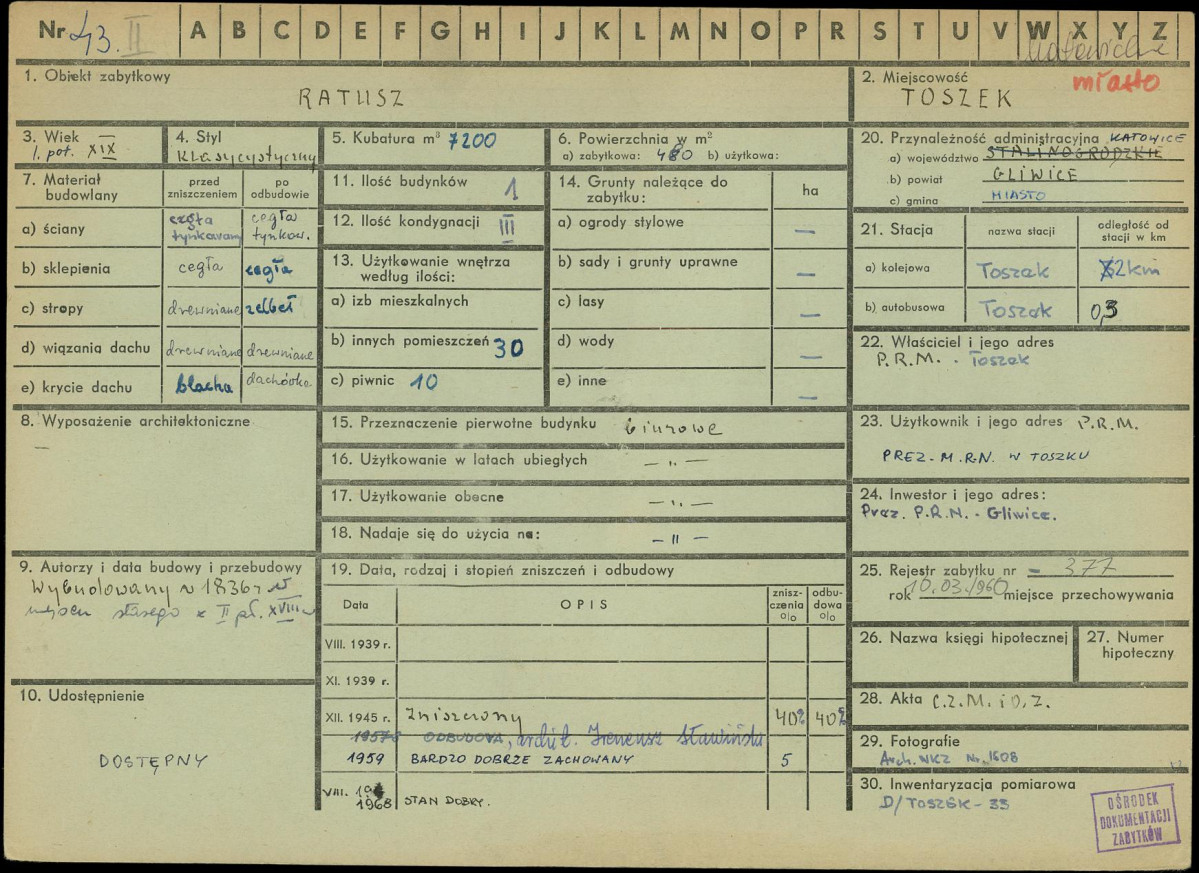 Nr 43. II A B C D E F G H I J K L M N O P R S T U V W X Y Z
1. Obiekt zabytkowy
RATUSZ
2. Miejscowość
miasto
TOSZEK
3. Wiek
1. poł. XIX
4. Styl
klasycystyczny
5. Kubatura m³ 7200
6. Powierzchnia w m²
a) zabytkowa: 480 b) użytkowa:
7. Materiał budowlany
przed zniszczeniem
po odbudowie
a) ściany cegła tynkowana cegła tynkow.
b) sklepienia cegła cegła
c) stropy drewniane żelbet
d) wiązania dachu drewniane drewniane
e) krycie dachu blacha dachówka
8. Wyposażenie architektoniczne
—
9. Autorzy i data budowy i przebudowy
Wybudowany w 1836 r w
miejscu starego z II pł. XVIII w
10. Udostępnienie
DOSTĘPNY
11. Ilość budynków 1
12. Ilość kondygnacji III
13. Użytkowanie wnętrza
według ilości:
a) izb mieszkalnych
b) innych pomieszczeń 30
c) piwnic 10
14. Grunty należące do
zabytku:
ha
a) ogrody stylowe —
b) sady i grunty uprawne —
c) lasy —
d) wody —
e) inne —
15. Przeznaczenie pierwotne budynku biurowe
16. Użytkowanie w latach ubiegłych — „ —
17. Użytkowanie obecne — „ —
18. Nadaje się do użycia na: — " —
19. Data, rodzaj i stopień zniszczeń i odbudowy
Data OPIS zniszczenia % odbudowa %
VIII. 1939 r.
XI. 1939 r.
XII. 1945 r. Zniszczony 40% 40%
ODBUDOWA, archit. Ireneusz Sławiński
1959 BARDZO DOBRZE ZACHOWANY 5
VIII. 1968 STAN DOBRY.
20. Przynależność administracyjna KATOWICE
a) województwo STALINOGRODZKIE
b) powiat GLIWICE
c) gmina MIASTO
21. Stacja
nazwa stacji
odległość od stacji w km
a) kolejowa Toszek 2km
b) autobusowa Toszek 0,3
22. Właściciel i jego adres
P.R.M. - Toszek
23. Użytkownik i jego adres P.R.M.
PREZ. M.R.N. W TOSZKU
24. Inwestor i jego adres:
Prez. P.R.N. - Gliwice.
25. Rejestr zabytku nr - 377
rok 10.03.1960 miejsce przechowywania
26. Nazwa księgi hipotecznej
27. Numer
hipoteczny
28. Akta C.Z.M. i O.Z.
29. Fotografie
Arch. WKZ Nr. 1608
30. Inwentaryzacja pomiarowa
D/TOSZEK - 33
OŚRODEK
DOKUMENTACJI
ZABYTKÓW